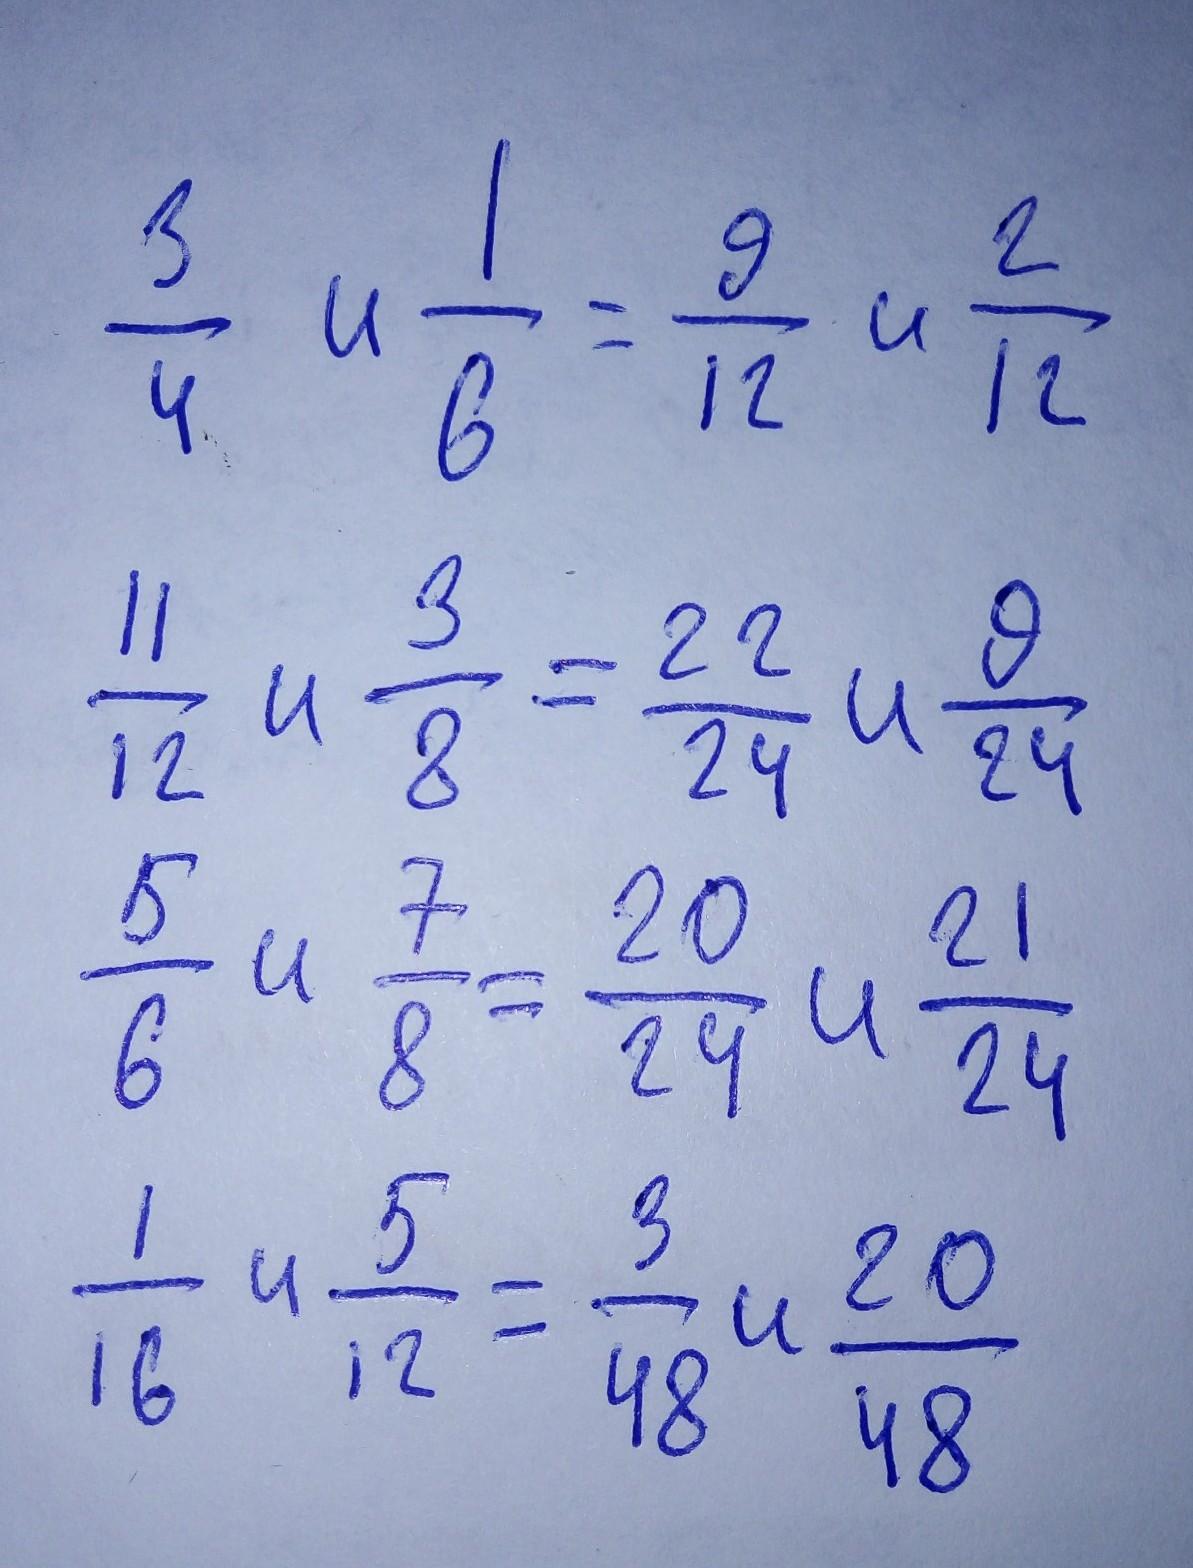 3/4 и 1/6 = 9/12 и 2/12
11/12 и 3/8 = 22/24 и 9/24
5/6 и 7/8 = 20/24 и 21/24
1/16 и 5/12 = 3/48 и 20/48